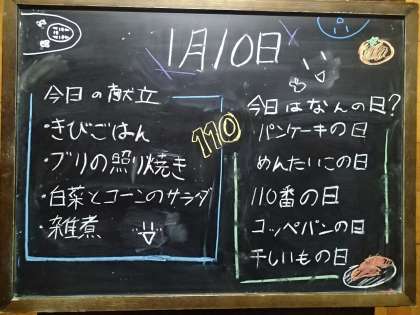 1月10日
今日の献立
・きびごはん
・ブリの照り焼き
・白菜とコーンのサラダ
・雑煮
110
今日はなんの日?
パンケーキの日
めんたいこの日
110番の日
コッペパンの日
干しいもの日